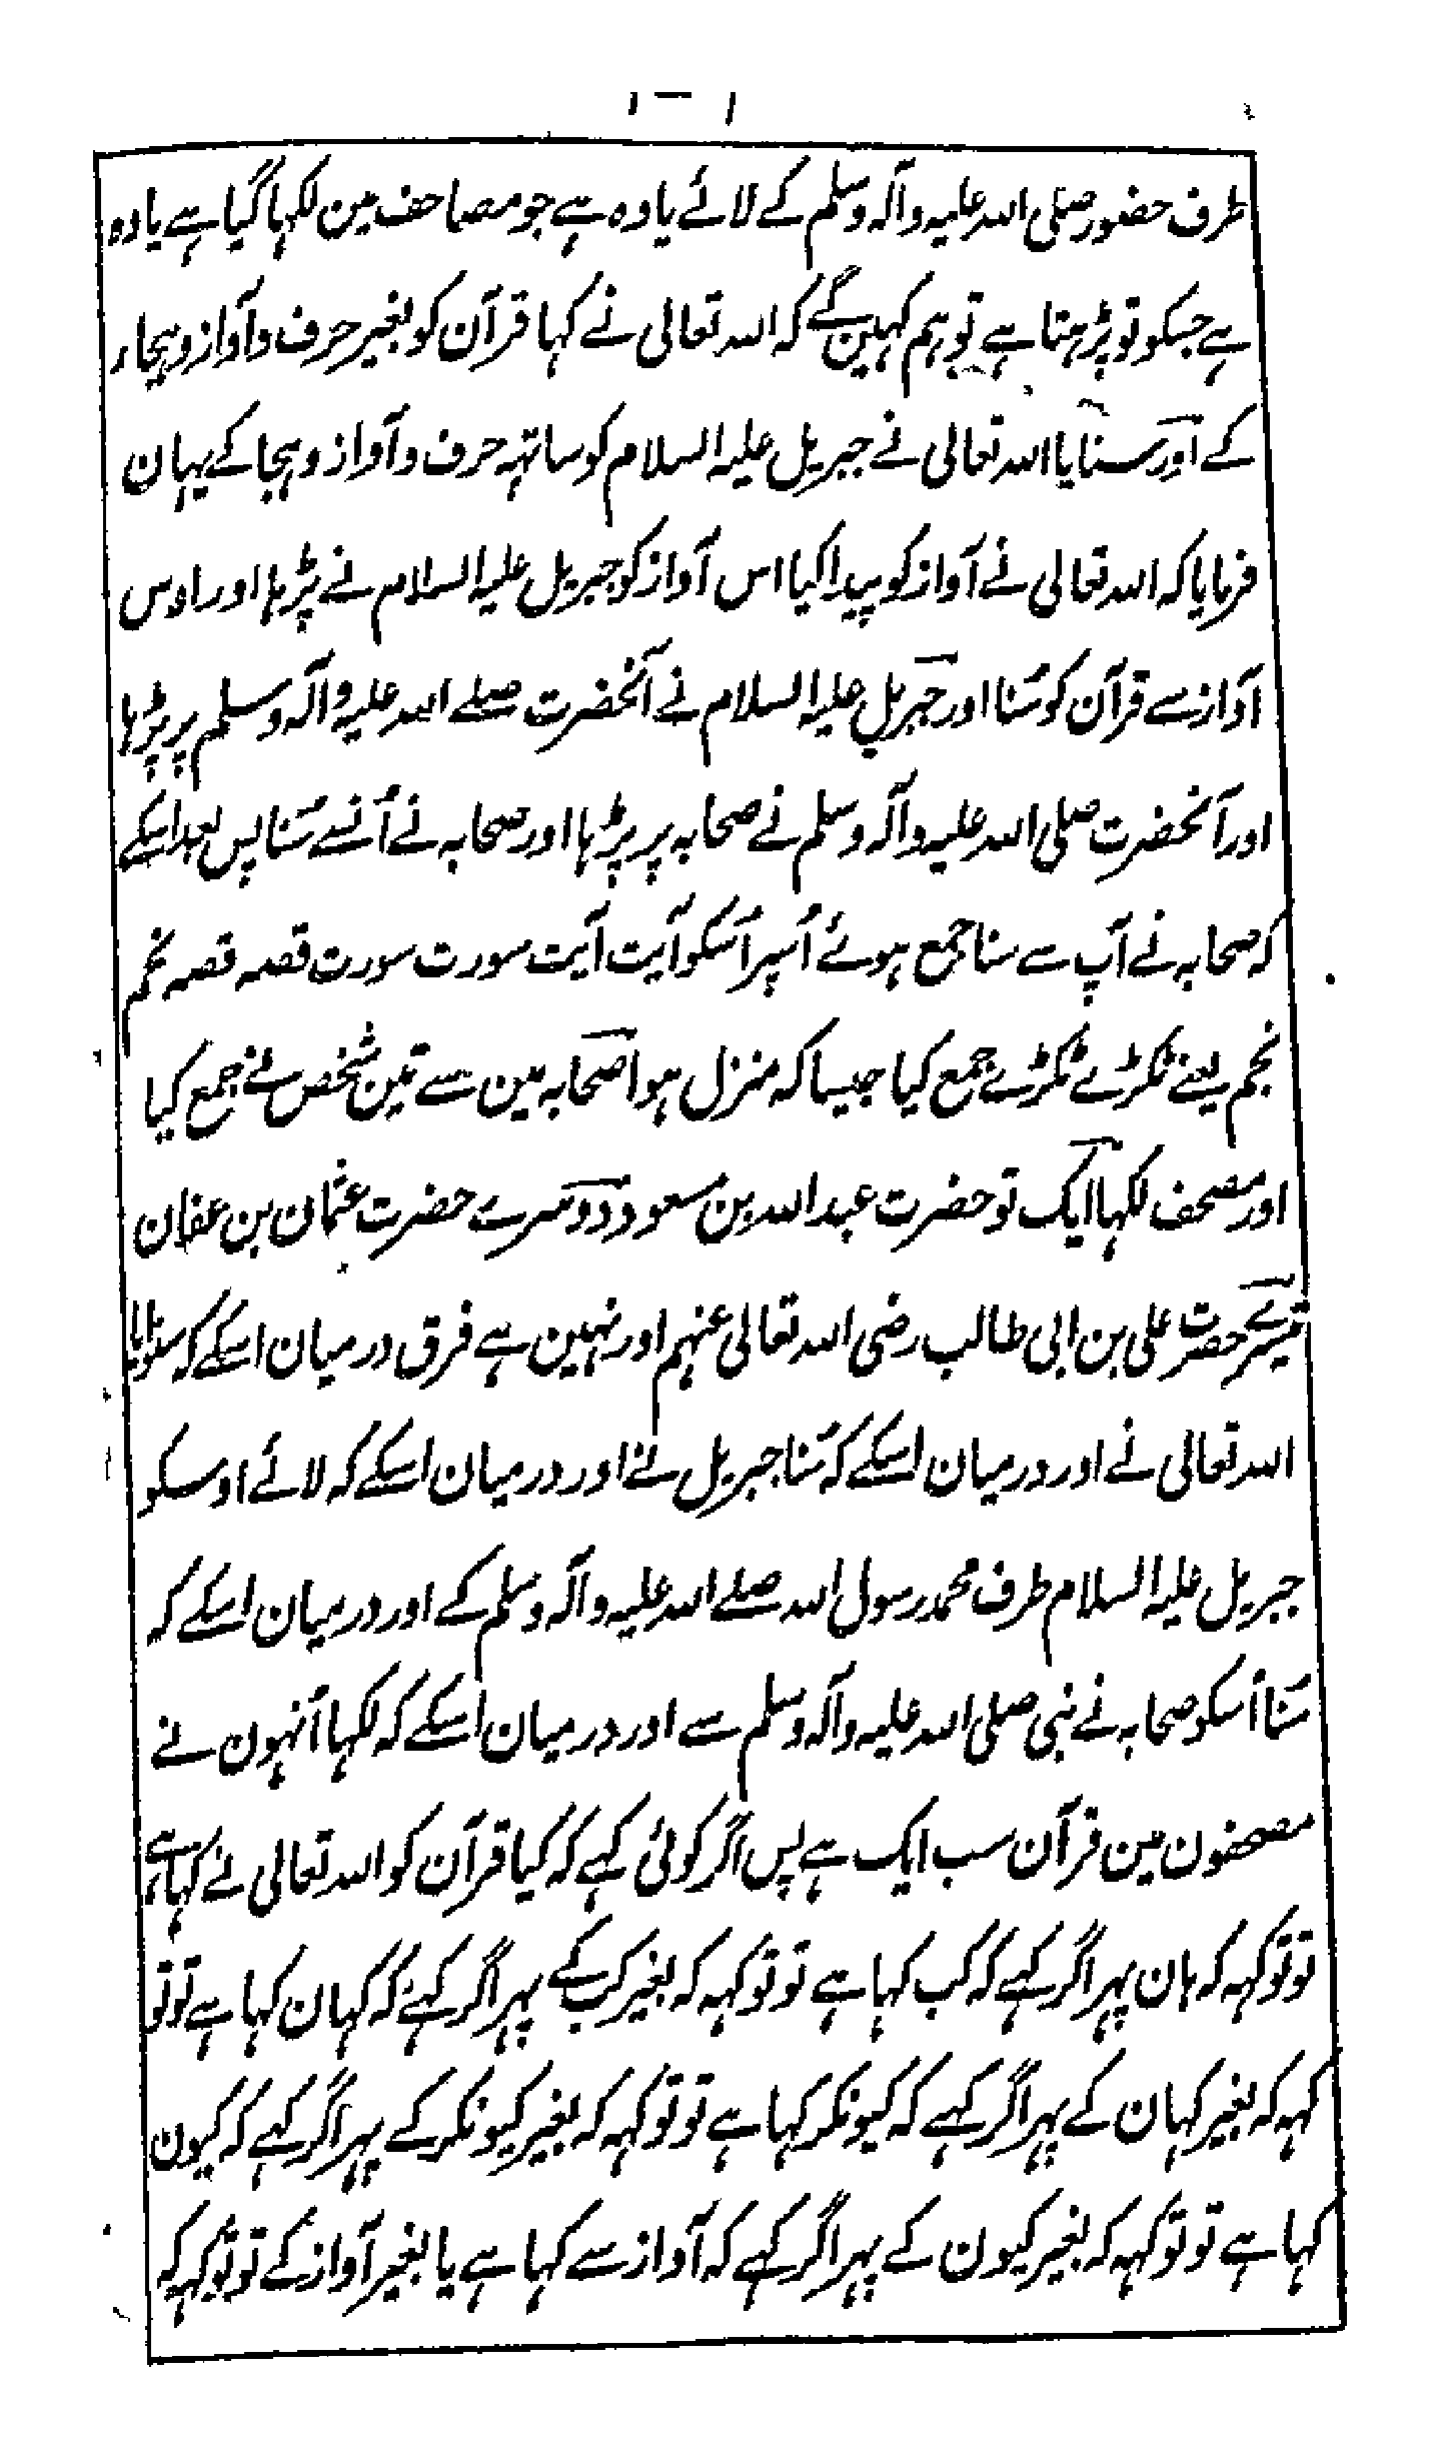 طرف حضور صلی اللہ علیہ وآلہ وسلم کے لائے یا وہ ہے جو مصاحف مین لکہا گیا ہے یا وہ
ہے جسکو تو پڑہتا ہے تو ہم کہین گے کہ اللہ تعالی نے کہا قرآن کو بغیر حرف وآواز وہجاء
کے اور سنایا اللہ تعالی نے جبریل علیہ السلام کو ساتہہ حرف وآواز وہجا کے یہان
فرمایا کہ اللہ تعالی نے آواز کو پیدا کیا اس آواز کو جبریل علیہ السلام نے پڑہا اور اوس
آواز سے قرآن کو سُنا اور جبریل علیہ السلام نے آنحضرت صلے اللہ علیہ وآلہ وسلم پر پڑہا
اور آنحضرت صلی اللہ علیہ وآلہ وسلم نے صحابہ پر پڑہا اور صحابہ نے اُنسے سُنا پس بعد اسکے
کہ صحابہ نے آپ سے سنا جمع ہوئے اُسپر اُسکو آیت آیت سورت سورت قصہ قصہ نجم
نجم یعنے ٹکڑے ٹکڑے جمع کیا جیسا کہ منزل ہوا صحابہ مین سے تین شخص نے جمع کیا
اور مصحف لکہا ایک تو حضرت عبد اللہ بن مسعود دوسرے حضرت عثمان بن عفان
تیسرے حضرت علی بن ابی طالب رضی اللہ تعالی عنہم اور نہین ہے فرق درمیان اسکے کہ سنوایا
اللہ تعالی نے اور درمیان اسکے کہ سُنا جبریل نے اور درمیان اسکے کہ لائے اوسکو
جبریل علیہ السلام طرف محمد رسول اللہ صلے اللہ علیہ وآلہ وسلم کے اور درمیان اسکے کہ
سُنا اُسکو صحابہ نے نبی صلی اللہ علیہ وآلہ وسلم سے اور درمیان اسکے کہ لکہا اُنہون نے
مصحفون مین قرآن سب ایک ہے پس اگر کوئی کہے کہ کیا قرآن کو اللہ تعالی نے کہا ہے
تو تو کہہ کہ ہان پہر اگر کہے کہ کب کہا ہے تو تو کہہ کہ بغیر کب کے پہر اگر کہے کہ کہان کہا ہے تو تو
کہہ کہ بغیر کہان کے پہر اگر کہے کہ کیونکر کہا ہے تو تو کہہ کہ بغیر کیونکر کے پہر اگر کہے کہ کیون
کہا ہے تو تو کہہ کہ بغیر کیون کے پہر اگر کہے کہ آواز سے کہا ہے یا بغیر آواز کے تو تو کہہ کہ